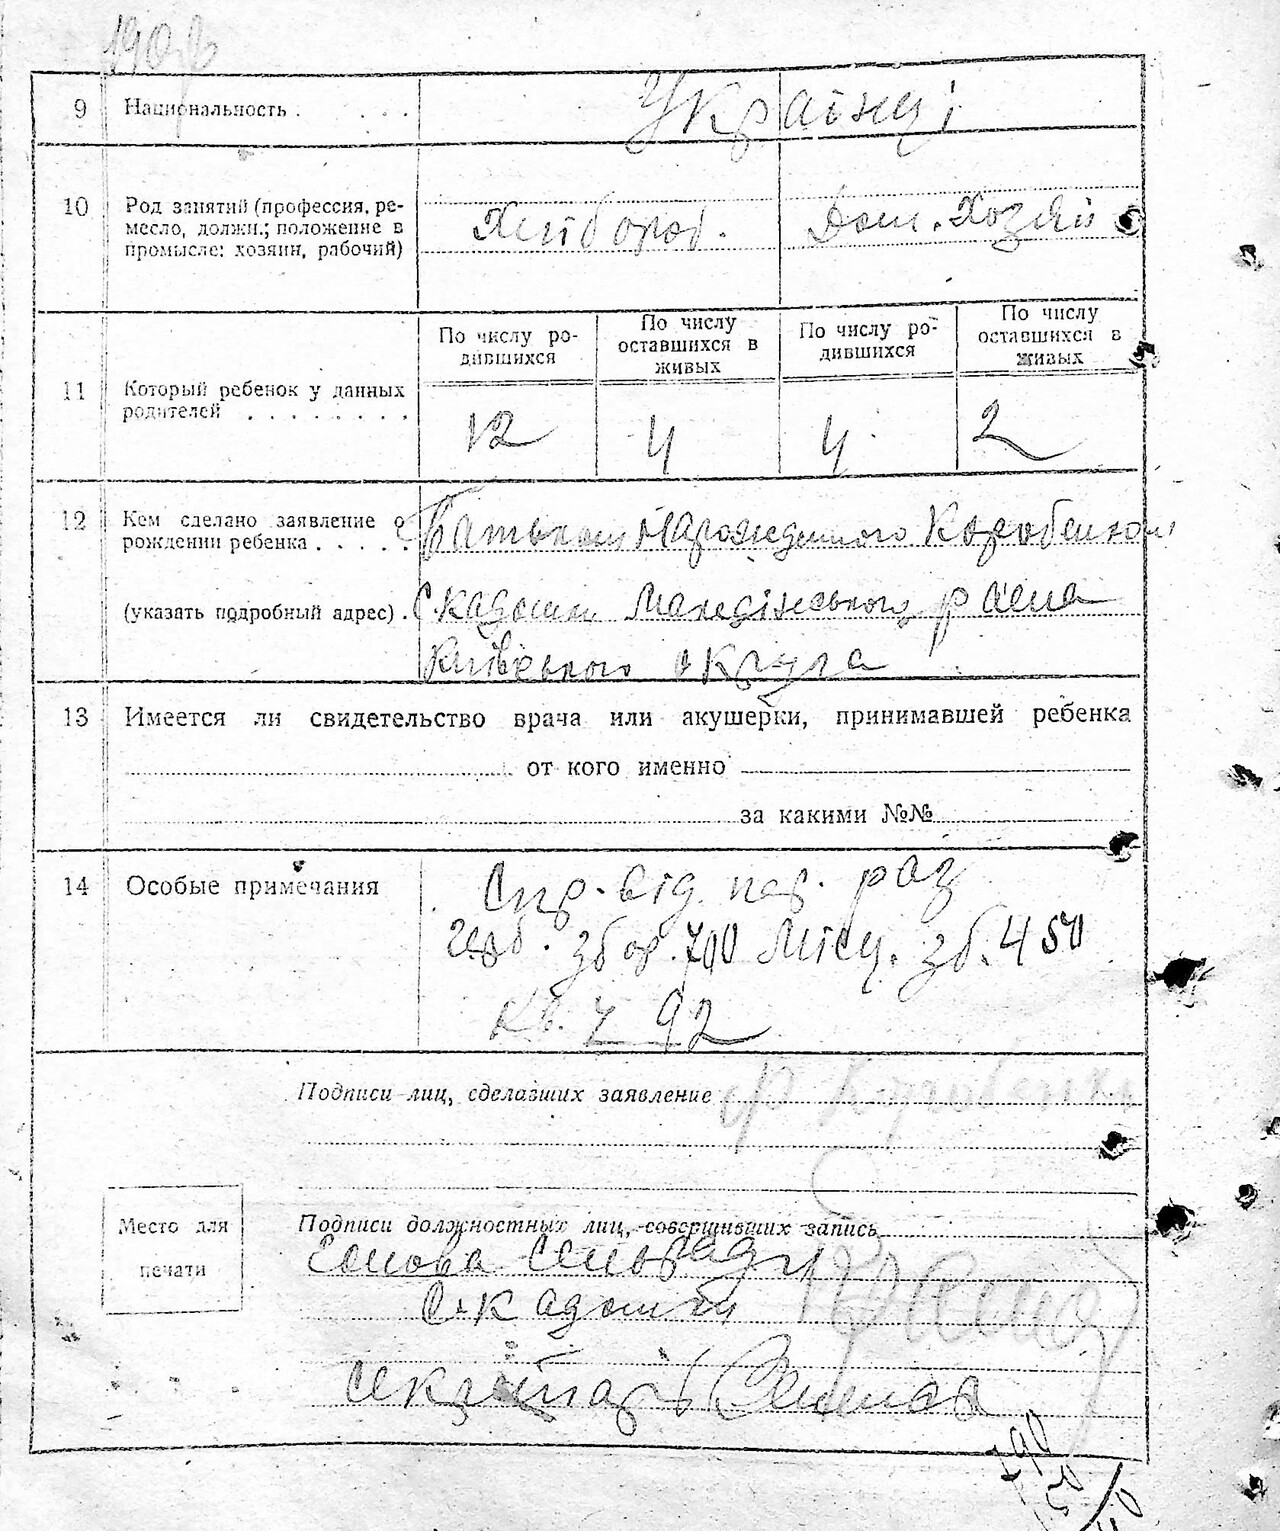 9 Национальность . . . . Українці
10 Род занятий (профессия, ре-
месло, должн.; положение в
промысле: хозяин, рабочий)
Хлібороб. Дом. Хозяй
По числу ро-
дившихся
По числу
оставшихся в
живых
По числу ро-
дившихся
По числу
оставшихся в
живых
11 Который ребенок у данных
родителей . . . . . . . .
12 4 4 2
12 Кем сделано заявление о
рождении ребенка . . . . .
Батьком Народженного Коробенком
(указать подробный адрес) .
района
Київського округа
13 Имеется ли свидетельство врача или акушерки, принимавшей ребенка
от кого именно
за какими №№
14 Особые примечания
Спр. від. пер. раз
герб. збор. 700 Місц. зб. 450
Кв. 92
Подписи лиц, сделавших заявление Коробенко
Место для
печати
Подписи должностных лиц, совершивших запись
Голова Сельради
секретарь